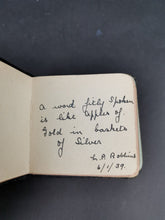 A word fitly Spoken
is like apples of
Gold in baskets
of Silver
L. A. Robbins
6/1/39.